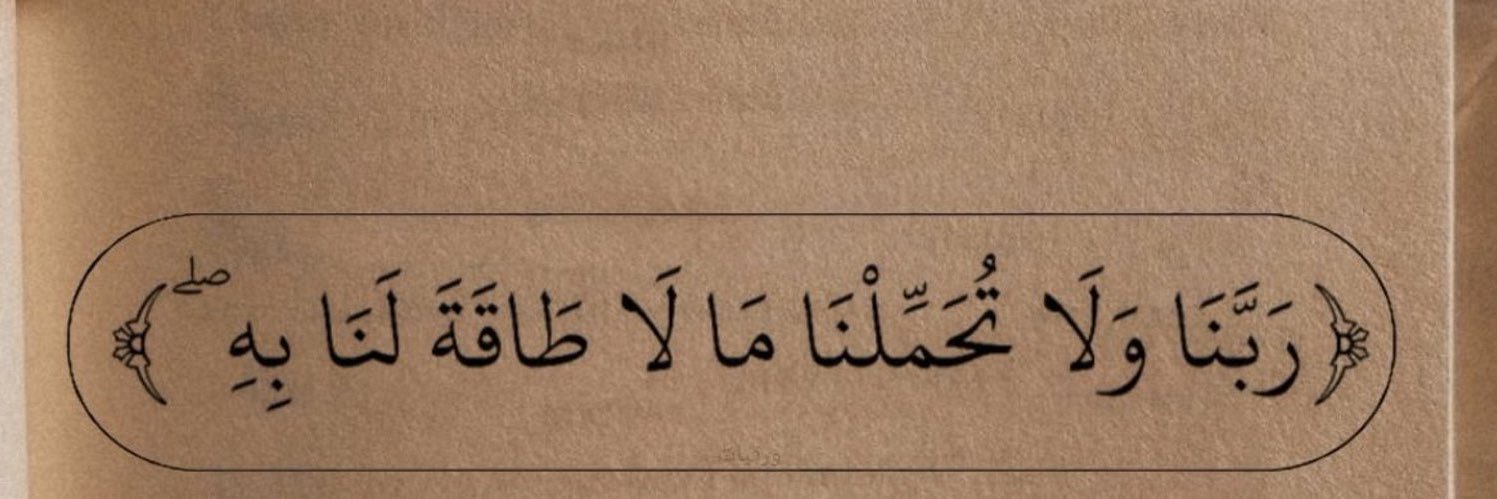 ﴿رَبَّنَا وَلَا تُحَمِّلْنَا مَا لَا طَاقَةَ لَنَا بِهِ ۖ﴾